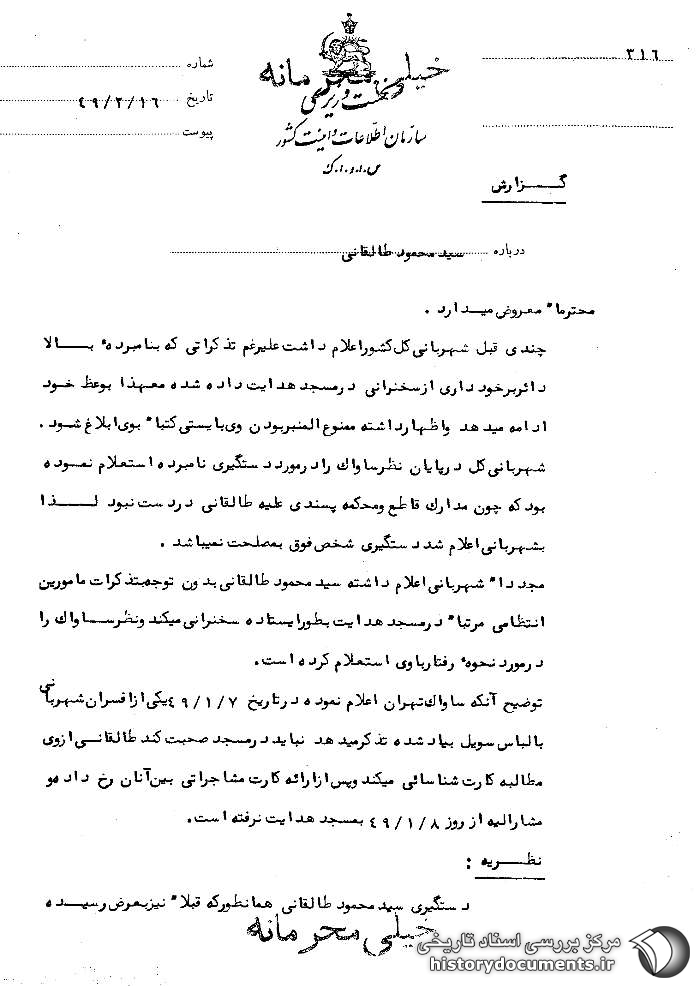 ۳۱۶
خیلی محرمانه
نخست وزیری
سازمان اطلاعات و امنیت کشور
س.ا.و.ا.ک
شماره
تاریخ ۴۹/۲/۱۶
پیوست
گزارش
درباره سید محمود طالقانی
محترما" معروض میدارد .
چندی قبل شهربانی کل کشور اعلام داشت علیرغم تذکراتی که بنامبرده ٔ بالا
دائر بر خود داری از سخنرانی در مسجد هدایت داده شده معهذا بوعظ خود
ادامه میدهد و اظهار داشته ممنوع المنبر بودن وی بایستی کتبا" بوی ابلاغ شود .
شهربانی کل در پایان نظر ساواك را در مورد دستگیری نامبرده استعلام نموده
بود که چون مدارك قاطع و محکمه پسندی علیه طالقانی در دست نبود لذا
بشهربانی اعلام شد دستگیری شخص فوق بمصلحت نمیباشد .
مجددا" شهربانی اعلام داشته سید محمود طالقانی بدون توجه بتذکرات مامورین
انتظامی مرتبا" در مسجد هدایت بطور ایستاده سخنرانی میکند و نظر ساواك را
در مورد نحوه ٔ رفتار با وی استعلام کرده است .
توضیح آنکه ساواك تهران اعلام نموده در تاریخ ۴۹/۱/۷ یکی از افسران شهربانی
با لباس سویل بیاد شده تذکر میدهد نباید در مسجد صحبت کند طالقانی از وی
مطالبه کارت شناسائی میکند و پس از ارائه کارت مشاجراتی بین آنان رخ داده و
مشارالیه از روز ۴۹/۱/۸ بمسجد هدایت نرفته است .
نظریه :
دستگیری سید محمود طالقانی همانطور که قبلا" نیز بعرض رسیده
خیلی محرمانه
مرکز بررسی اسناد تاریخی
historydocuments.ir